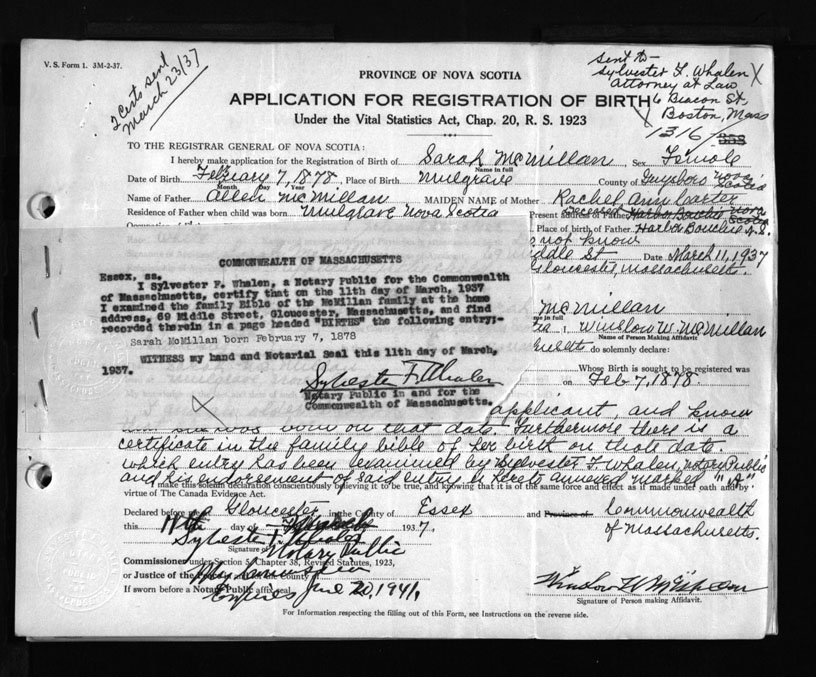 V. S. Form 1. 3M-2-37.
2 Certs sent
March 23/37
sent to-
Sylvester F. Whalen
Attorney at Law
6 Beacon St.
Boston, Mass
1316
PROVINCE OF NOVA SCOTIA
APPLICATION FOR REGISTRATION OF BIRTH
Under the Vital Statistics Act, Chap. 20, R. S. 1923
TO THE REGISTRAR GENERAL OF NOVA SCOTIA:
I hereby make application for the Registration of Birth of Sarah McMillan, Sex Female
Name in full
Date of Birth February 7, 1878, Place of Birth Mulgrave County of Guysboro Nova Scotia
Month Day Year
Name of Father Allen McMillan MAIDEN NAME of Mother Rachel Ann Carter
Residence of Father when child was born Mulgrave Nova Scotia Present address of Father Deceased Harbor Bouchie Nova Scotia
Place of birth of Father Harbor Bouchie N.S.
not know
69 Middle St- Date March 11, 1937
Gloucester, Massachusetts.
COMMONWEALTH OF MASSACHUSETTS
Essex, ss.
I Sylvester F. Whalen, a Notary Public for the Commonwealth
of Massachusetts, certify that on the 11th day of March, 1937
I examined the family Bible of the McMillan family at the home
address, 69 Middle Street, Gloucester, Massachusetts, and find
recorded therein in a page headed "BIRTHS" the following entry:-
Sarah McMillan born February 7, 1878
WITNESS my hand and Notarial Seal this 11th day of March,
1937.
Sylvester F. Whalen
Notary Public in and for the
Commonwealth of Massachusetts.
McMillan
me in full
I, Winslow W. McMillan
Name of Person Making Affidavit.
do solemnly declare:
Whose Birth is sought to be registered was
on Feb 7, 1878.
applicant and know
was born on that date. Furthermore there is a
certificate in the family bible of her birth on that date
which entry has been examined by Sylvester F. Whalen, Notary Public
and his endorsement of said entry is hereto annexed marked "A"
I make this solemn declaration conscientiously believing it to be true, and knowing that it is of the same force and effect as if made under oath and by
virtue of The Canada Evidence Act.
Declared before me at Gloucester in the County of Essex and Province of Commonwealth
of Massachusetts.
this 11th day of March 1937.
Sylvester F. Whalen
Signature of
Notary Public
Commissioner under Section 5, Chapter 38, Revised Statutes, 1923,
or Justice of the Peace for the County
My Commission
If sworn before a Notary Public affix seal.
Expires June 20, 1941.
Winslow W McMillan
Signature of Person making Affidavit.
For Information respecting the filling out of this Form, see Instructions on the reverse side.